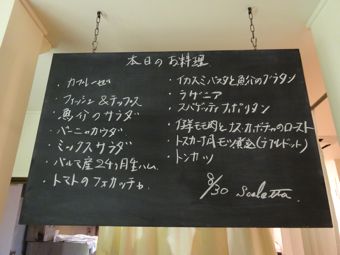 本日のお料理
・カプレーゼ
・フィッシュ&チップス
・魚介のサラダ
・バーニャカウダ
・ミックスサラダ
・パルマ産24ヶ月生ハム
・トマトのフォカッチャ
・イカスミパスタと魚介のグラタン
・ラザニア
・スパゲッティナポリタン
・仔羊モモ肉とナス、カボチャのロースト
・トスカーナ風モツ煮込
・トンカツ
8/30 Scaletta